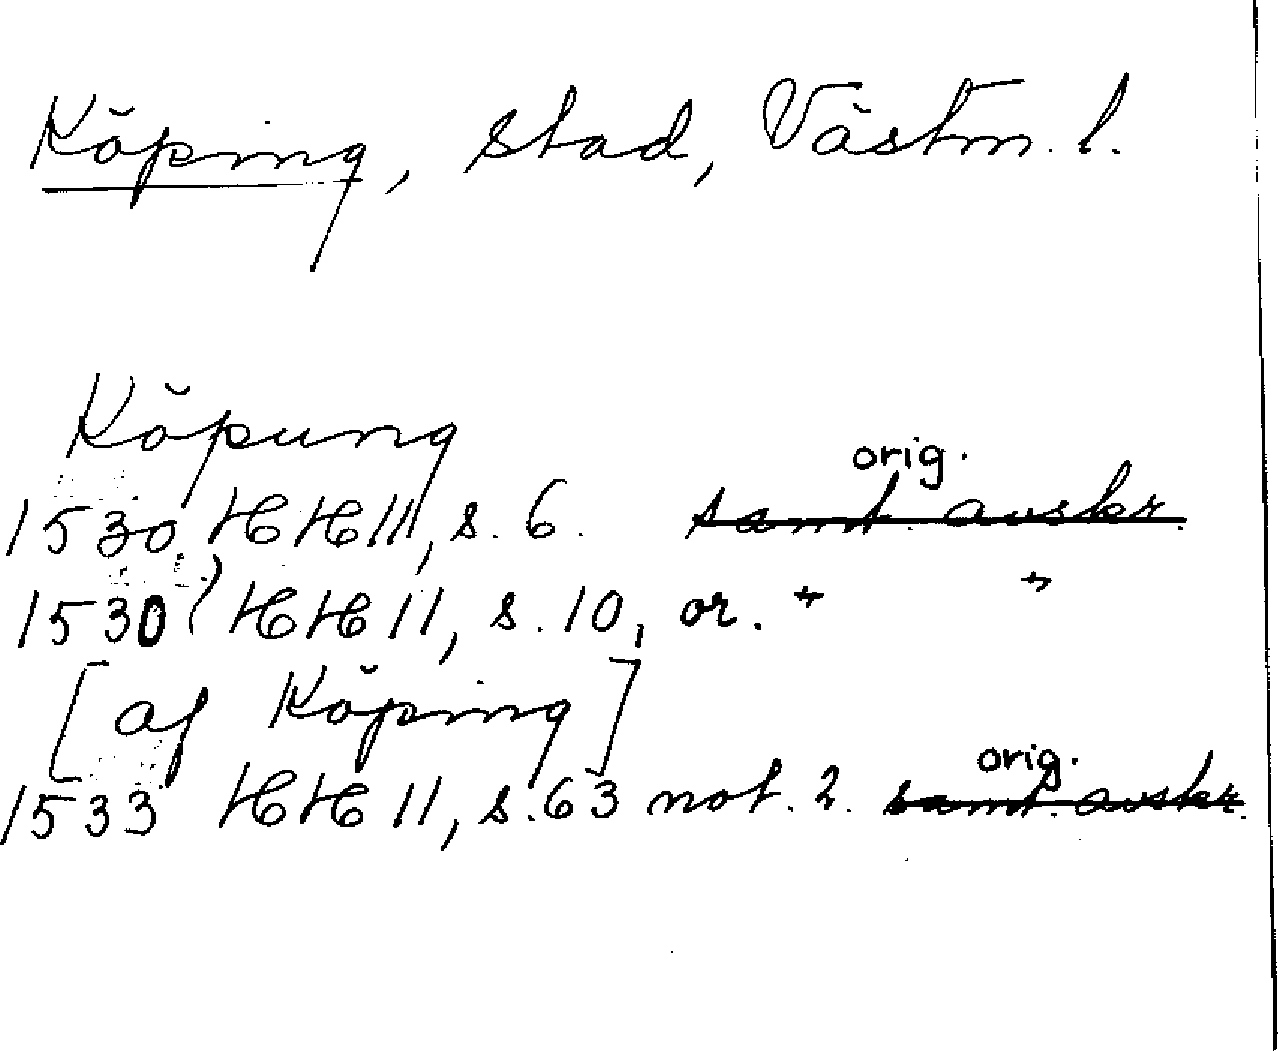 Köping, stad, Västm. l.
Köpung
orig.
1530. HH 11, s. 6. samt. avskr.
1530 HH 11, s. 10, or. " "
[af Köping]
orig.
1533 HH 11, s. 63 not. 2. samt. avskr.